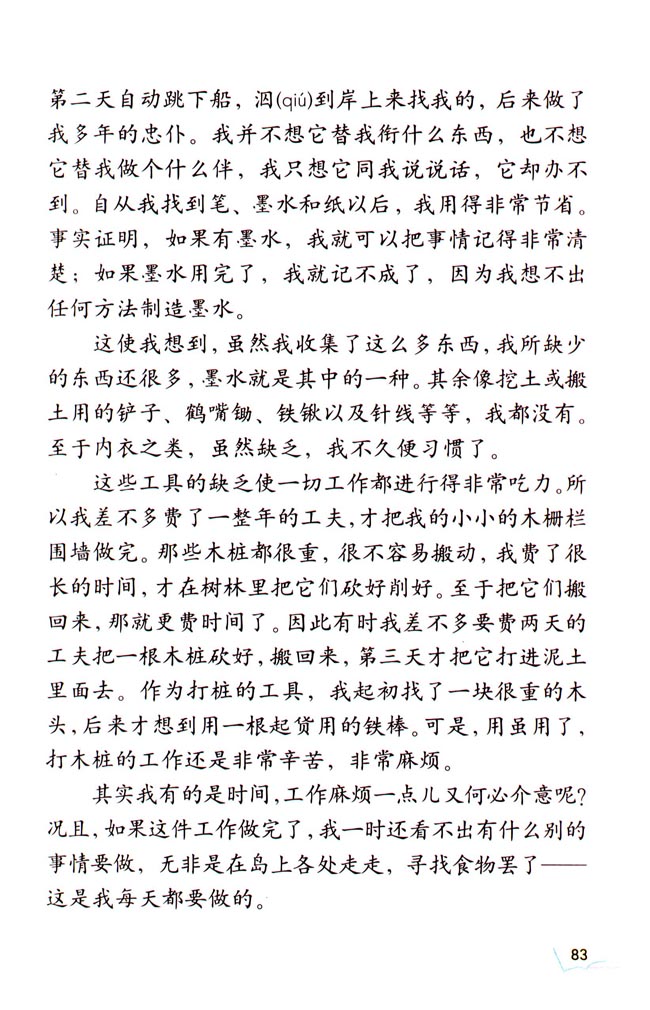 第二天自动跳下船，泅(qiú)到岸上来找我的，后来做了
我多年的忠仆。我并不想它替我衔什么东西，也不想
它替我做个什么伴，我只想它同我说说话，它却办不
到。自从我找到笔、墨水和纸以后，我用得非常节省。
事实证明，如果有墨水，我就可以把事情记得非常清
楚；如果墨水用完了，我就记不成了，因为我想不出
任何方法制造墨水。
这使我想到，虽然我收集了这么多东西，我所缺少
的东西还很多，墨水就是其中的一种。其余像挖土或搬
土用的铲子、鹤嘴锄、铁锹以及针线等等，我都没有。
至于内衣之类，虽然缺乏，我不久便习惯了。
这些工具的缺乏使一切工作都进行得非常吃力。所
以我差不多费了一整年的工夫，才把我的小小的木栅栏
围墙做完。那些木桩都很重，很不容易搬动，我费了很
长的时间，才在树林里把它们砍好削好。至于把它们搬
回来，那就更费时间了。因此有时我差不多要费两天的
工夫把一根木桩砍好，搬回来，第三天才把它打进泥土
里面去。作为打桩的工具，我起初找了一块很重的木
头，后来才想到用一根起货用的铁棒。可是，用虽用了，
打木桩的工作还是非常辛苦，非常麻烦。
其实我有的是时间，工作麻烦一点儿又何必介意呢？
况且，如果这件工作做完了，我一时还看不出有什么别的
事情要做，无非是在岛上各处走走，寻找食物罢了——
这是我每天都要做的。
83